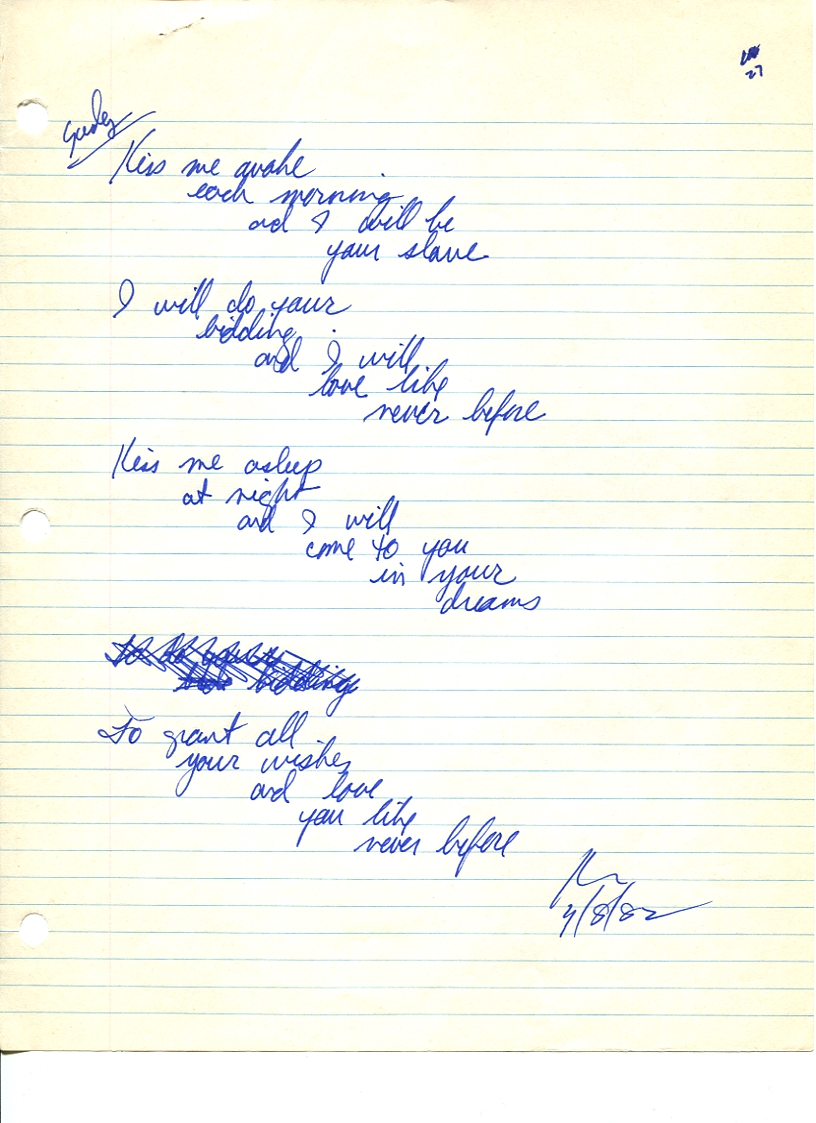 27
Kiss me awake
each morning
and I will be
your slave
I will do your
bidding
and I will
love like
never before
Kiss me asleep
at night
and I will
come to you
in your
dreams
To do your
bidding
To grant all
your wishes
and love
you like
never before
/8/82